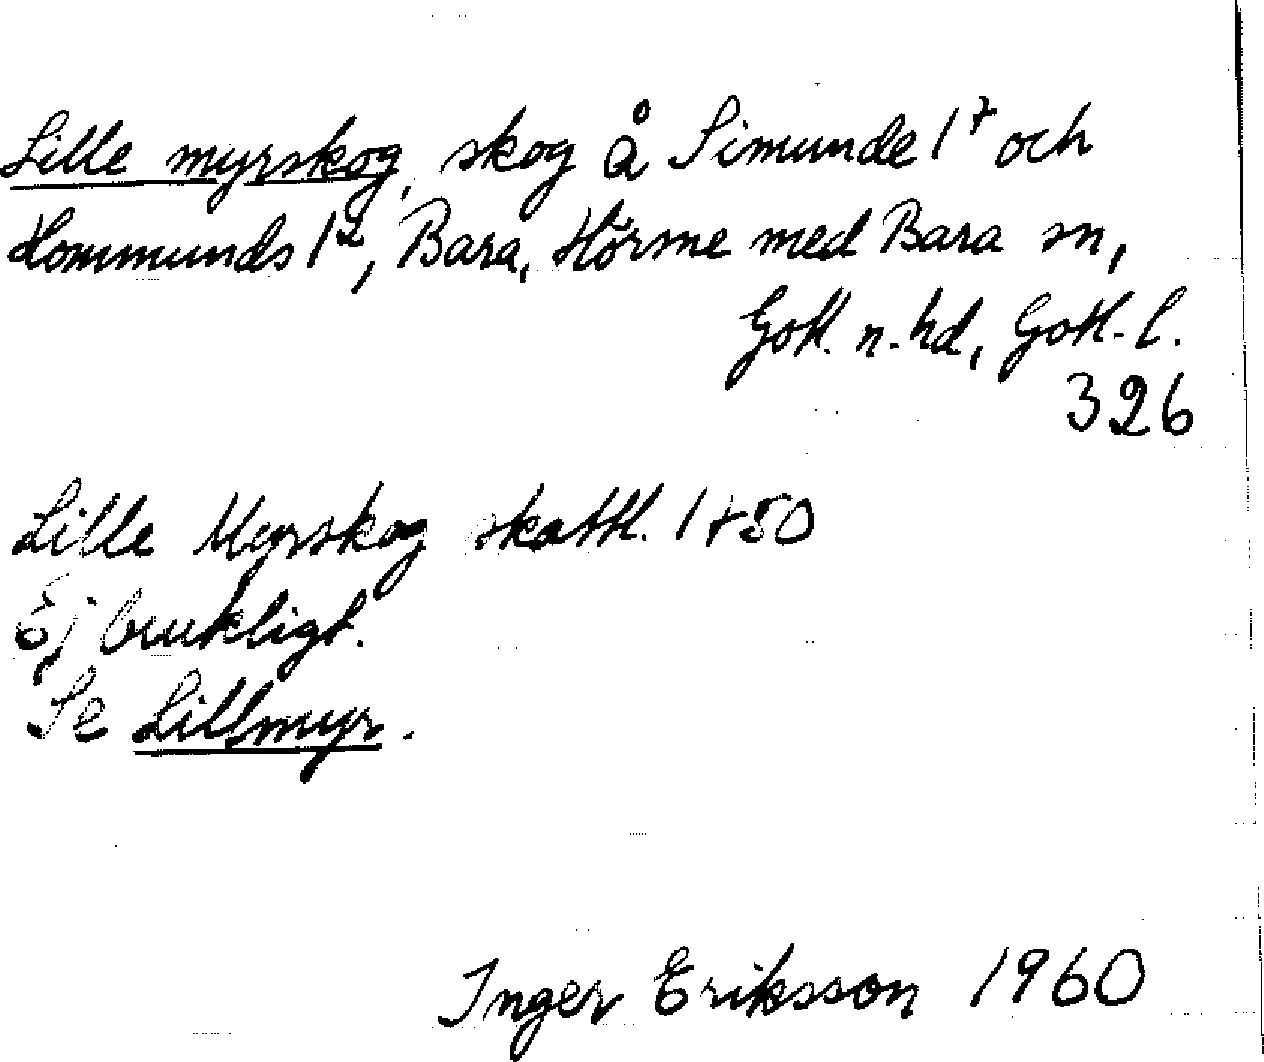 Lille myrskog, skog å Simunde 1⁷ och
Hommunds 1², Bara, Hörsne med Bara sn,
Gotl. n. hd, Gotl. l.
326
Lille Myrskog skattl. 1750
Ej brukligt.
Se Lillmyr.
Inger Eriksson 1960